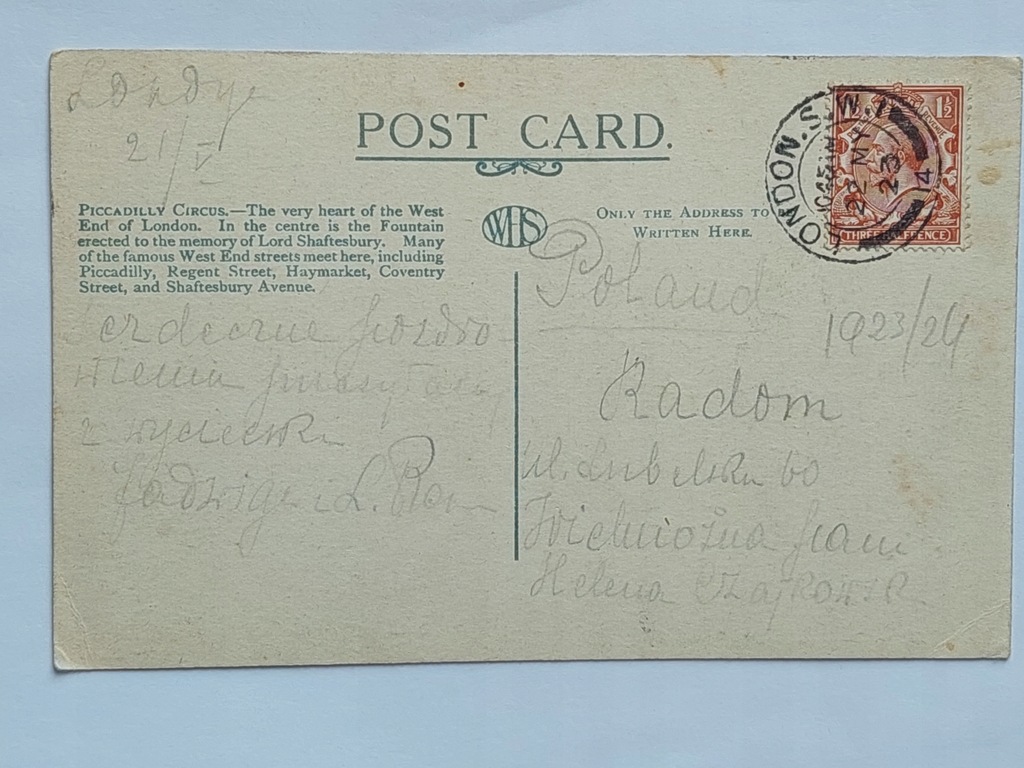 Londyn
21/V
POST CARD.
PICCADILLY CIRCUS.—The very heart of the West
End of London. In the centre is the Fountain
erected to the memory of Lord Shaftesbury. Many
of the famous West End streets meet here, including
Piccadilly, Regent Street, Haymarket, Coventry
Street, and Shaftesbury Avenue.
WHS
ONLY THE ADDRESS TO
WRITTEN HERE.
LONDON.S.W.1
22 MY
23
14
1½
Serdeczne pozdro
wienia przesyłam
z wycieczki
Jadwiga i L.
Poland
1923/24
Radom
ul. Lubelska 60
Wielmożna Pani
Helena